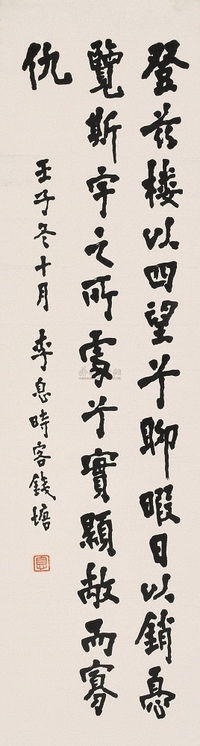 登茲樓以四望兮聊暇日以銷憂
覽斯宇之所處兮實顯敞而寡
仇
壬子冬十月 李息時客錢塘